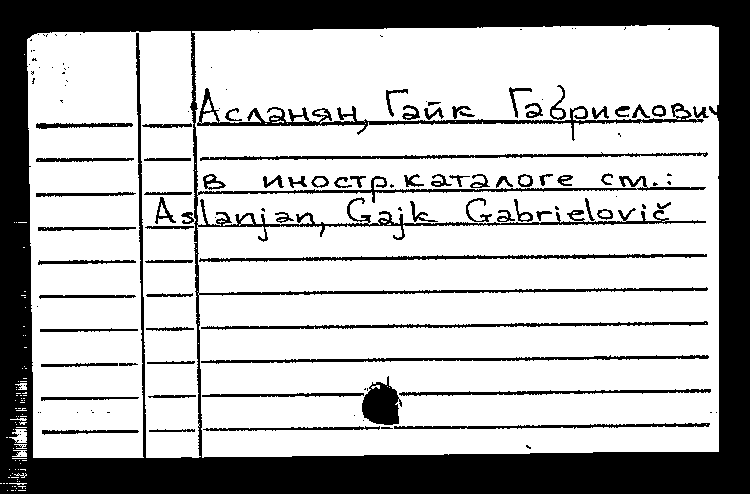 Асланян, Гайк Габриелович
в иностр. каталоге см.:
Aslanjan, Gajk Gabrielovič